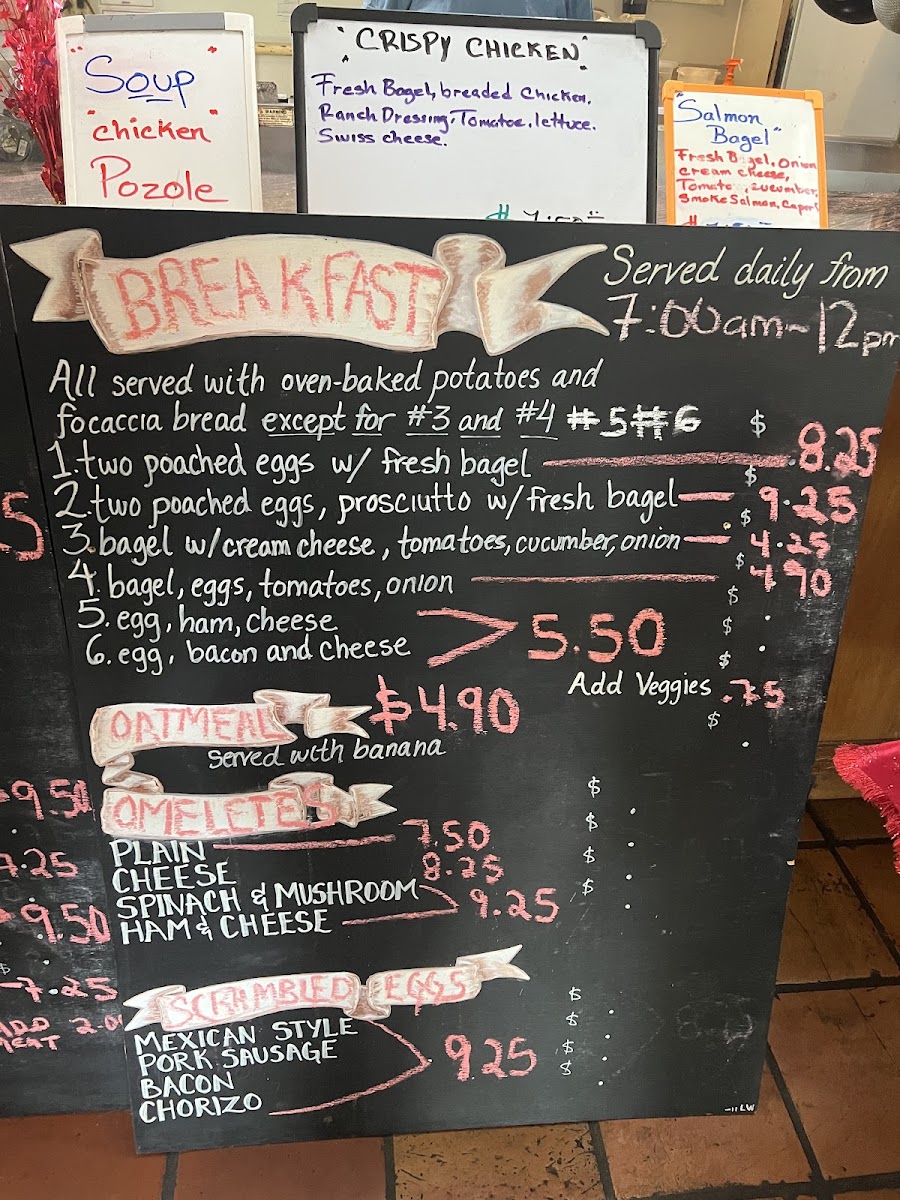 Soup
"chicken"
Pozole
"CRISPY CHICKEN"
Fresh Bagel, breaded chicken,
Ranch Dressing, Tomatoe, lettuce.
Swiss cheese.
"Salmon
Bagel"
Fresh Bagel, onion
cream cheese,
Tomato, cucumber,
Smoke Salmon, Capers
BREAKFAST
Served daily from
7:00am-12pm
All served with oven-baked potatoes and
focaccia bread except for #3 and #4 #5#6
1. two poached eggs w/ fresh bagel $ 8.25
2. two poached eggs, prosciutto w/ fresh bagel $ 9.25
3. bagel w/cream cheese, tomatoes, cucumber, onion $ 4.25
4. bagel, eggs, tomatoes, onion $ 4.90
5. egg, ham, cheese $
6. egg, bacon and cheese 5.50 $
Add Veggies $ .75
OATMEAL $4.90 $
served with banana
OMELETES
PLAIN 7.50 $
CHEESE 8.25 $
SPINACH & MUSHROOM $
HAM & CHEESE 9.25 $
SCRAMBLED EGGS
MEXICAN STYLE $
PORK SAUSAGE 9.25 $
BACON $
CHORIZO $
-11 LW
5
9.50
7.25
9.50
$
-7.25
ADD 2.0
MEAT